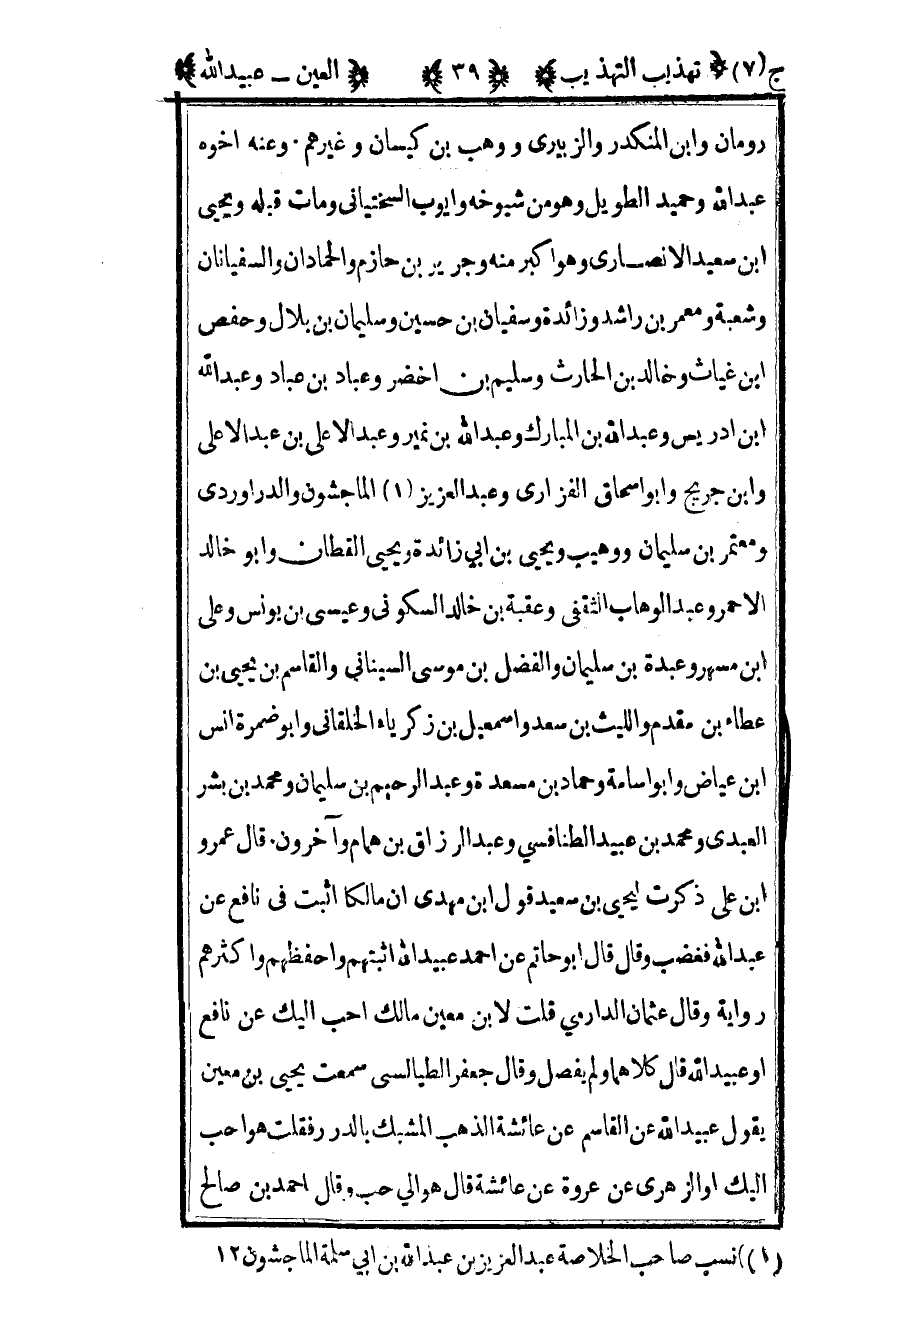 ج (٧) تهذيب التهذيب ٣٩ العين ــ عبيدالله
رومان وابن المنكدر والزبيرى و وهب بن كيسان و غيرهم ٠ وعنه اخوه
عبدالله وحميد الطويل وهومن شيوخه وايوب السختيانى ومات قبله ويحيى
ابن سعيد الانصارى وهواكبر منه وجرير بن حازم والحمادان والسفيانان
وشعبة ومعمر بن راشد وزائدة وسفيان بن حسين وسليمان بن بلال وحفص
ابن غياث وخالد بن الحارث وسليم بن اخضر وعباد بن عباد وعبدالله
ابن ادريس وعبدالله بن المبارك وعبدالله بن نمير وعبد الاعلى بن عبد الاعلى
وابن جريج وابواسحاق الفزارى وعبد العزيز (١) الماجشون والدراوردى
ومعتمر بن سليمان ووهيب ويحيى بن ابي زائدة ويحيى القطان وابو خالد
الاحمر وعبد الوهاب الثقفى وعقبة بن خالد السكونى وعيسى بن يونس وعلى
ابن مسهر وعبدة بن سليمان والفضل بن موسى السينانى والقاسم بن يحيى بن
عطاء بن مقدم والليث بن سعد واسمعيل بن زكرياء الخلقانى وابو ضمرة انس
ابن عياض وابواسامة وحماد بن مسعدة وعبدالرحيم بن سليمان ومحمد بن بشر
العبدى ومحمد بن عبيد الطنافسي وعبدالرزاق بن همام وآخرون ٠ قال عمرو
ابن على ذكرت ليحيى بن سعيد قول ابن مهدى ان مالكا اثبت فى نافع عن
عبدالله فغضب وقال قال ابوحاتم عن احمد عبيدالله اثبتهم واحفظهم واكثرهم
رواية وقال عثمان الدارمي قلت لابن معين مالك احب اليك عن نافع
اوعبيدالله قال كلاهما ولم يفصل وقال جعفر الطيالسى سمعت يحيى بن معين
يقول عبيدالله عن القاسم عن عائشة الذهب المشبك بالدرر فقلت هو احب
اليك اوالزهرى عن عروة عن عائشة قال هوالي حب وقال احمد بن صالح
(١) )نسب صاحب الخلاصة عبدالعزيز بن عبدالله بن ابي سلمة الماجشون ١٢